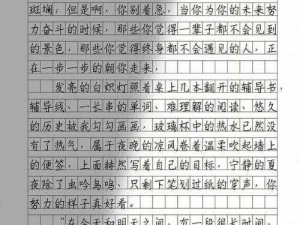 斑斓；但是啊，你别着急，当你为你的未来努
力奋斗的时候，那些你觉得一辈子都不会见到
的景色，那些你觉得终身都不会遇见的人，正
在一步一步的朝你走来，
发亮的白炽灯照着桌上几本翻开的辅导书，
辅导线、一长串的单词、难理解的阅读、悠久
的历史被我勾勾画画，玻璃杯中的热水已然没
有了热气，属于夜晚的凉风卷着温柔吹起墙上
的便签，上面赫然写着自己的目标，宁静的夏
夜除了虫吟鸟鸣、只剩下笔划过纸的掌声，你
努力的样子真好看。
“在今天和明天之间，有一段很长时间，